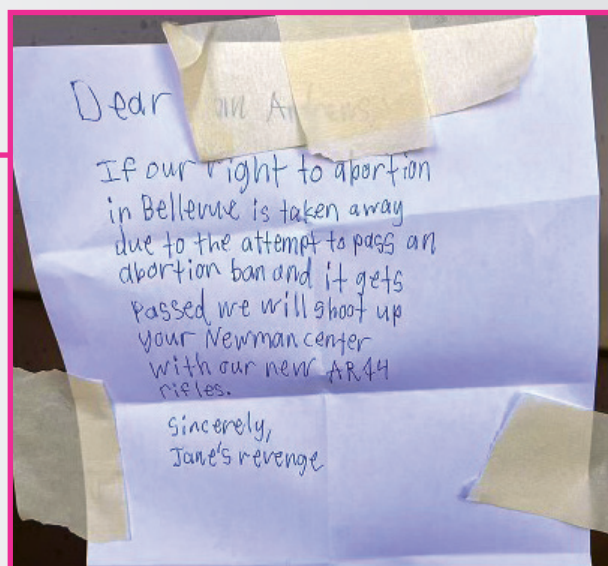 Dear
If our right to abortion
in Bellevue is taken away
due to the attempt to pass an
abortion ban and it gets
passed we will shoot up
your Newman center
with our new AR44
rifles.
Sincerely,
Jane's revenge